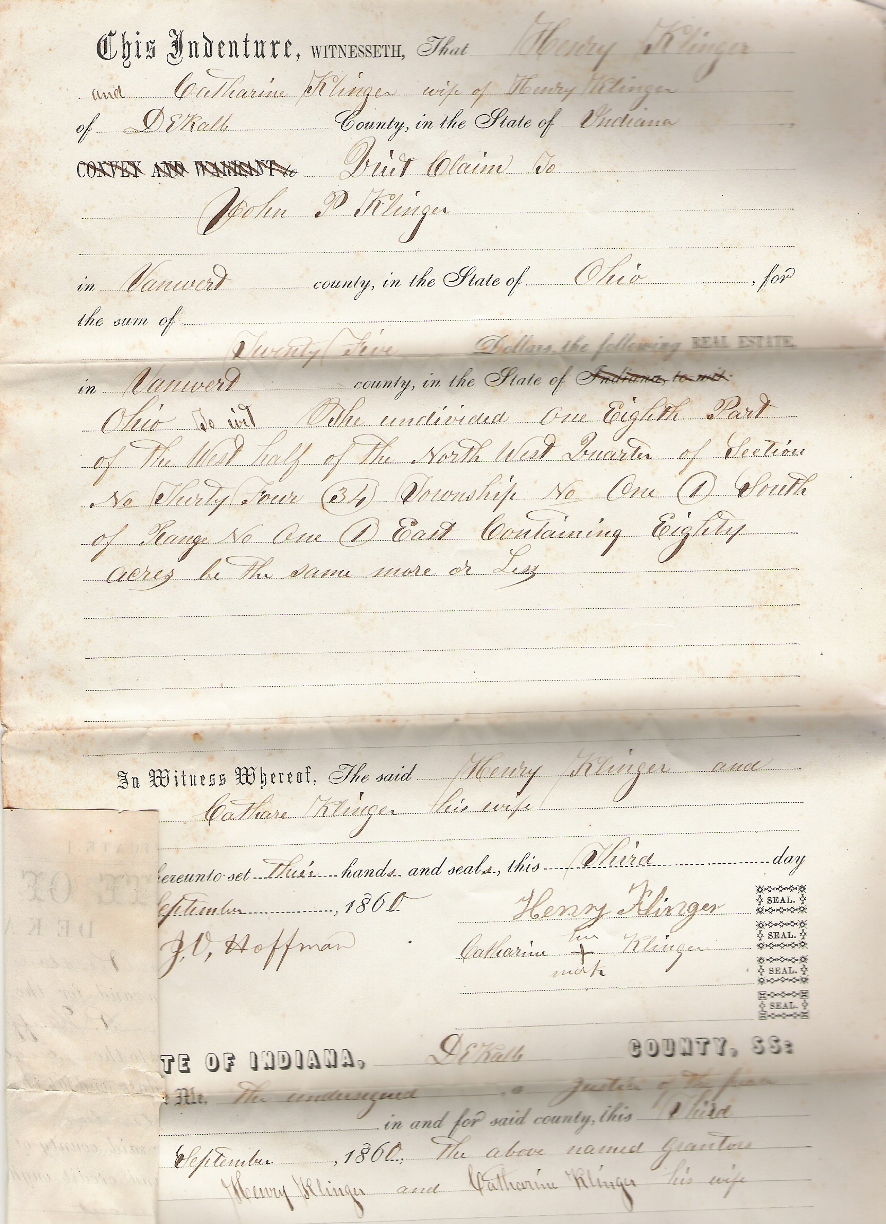 This Indenture, WITNESSETH, That Henry Klinger
and Catharine Klinger wife of Henry Klinger
of DeKalb County, in the State of Indiana
CONVEY AND WARRANT to Quit Claim To
John P Klinger
in Vanwert county, in the State of Ohio, for
the sum of
Twenty Five Dollars, the following REAL ESTATE,
in Vanwert county, in the State of Indiana, to wit:
Ohio To wit The undivided One Eighth Part
of The West half of The North West Quarter of Section
No Thirty Four (34) Township No One (1) South
of Range No One (1) East Containing Eighty
acres be the same more or Less
In Witness Whereof, The said Henry Klinger and
Cathare Klinger his wife
hereunto set their hands and seals, this Third day
September, 1860
Henry Klinger SEAL.
J. O. Hoffman
Catharine her + mark Klinger SEAL.
SEAL.
SEAL.
TE OF INDIANA, DeKalb COUNTY, SS:
Me, The undersigned a Justice of the peace
in and for said county, this Third
September, 1860, The above named Grantors
Henry Klinger and Catharine Klinger his wife